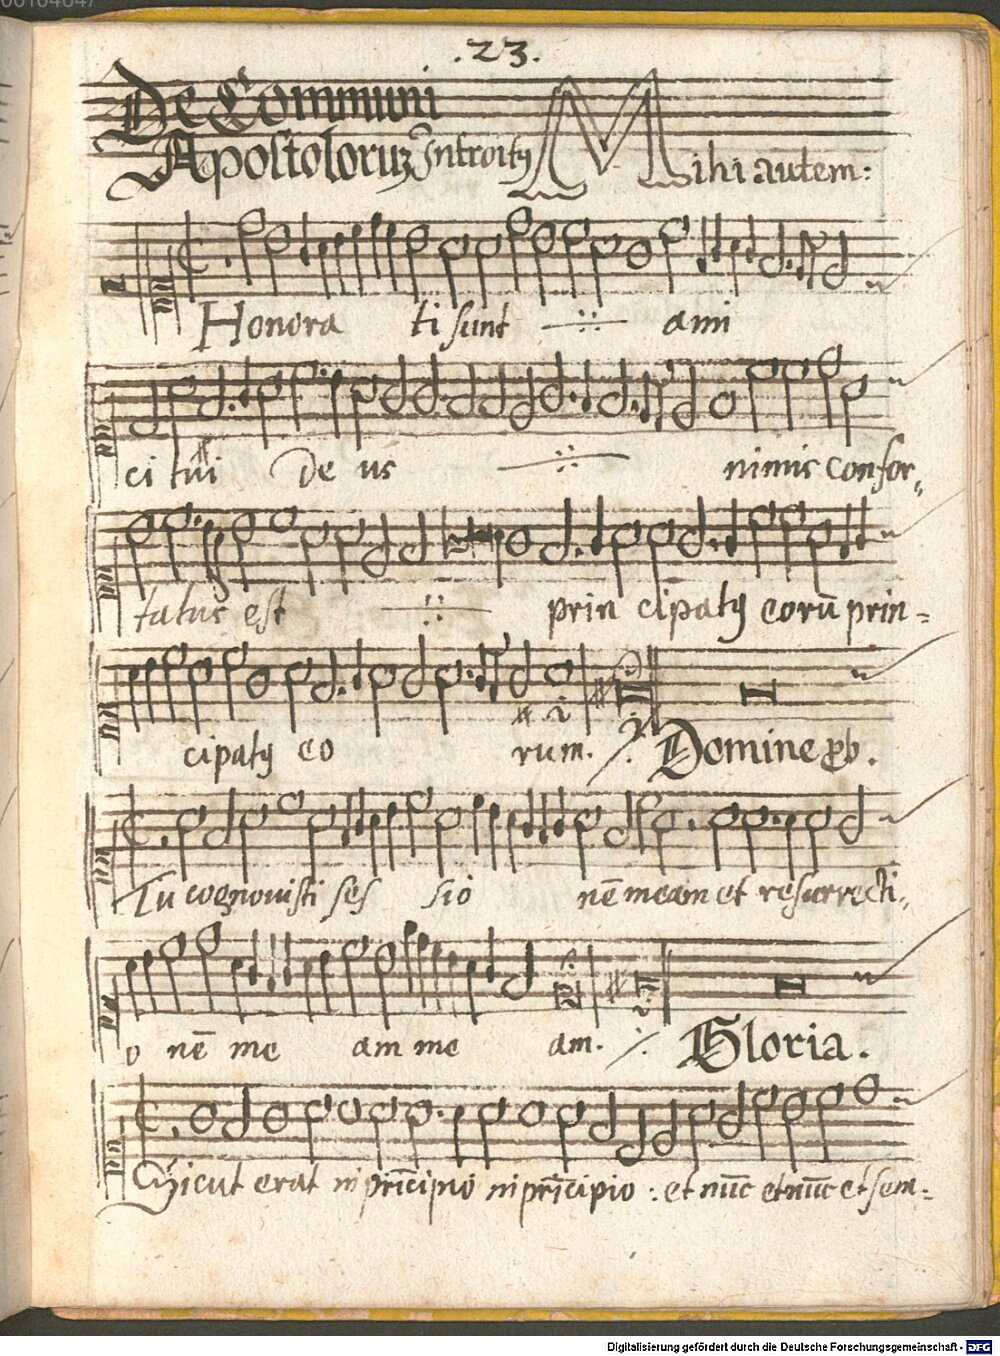 .23.
De Communi
Apostoloruꝫ Introitꝰ Mihi autem:
Honora ti sunt ·//· ami
ci tui De us ·//· nimis confor-
tatus est ·//· prin cipatꝰ eorū prin=
cipatꝰ eo rum. ij Domine ꝓb.
Tu cognovisti ses sio nē meam et resurrecti-
o nē me am me am. Gloria.
Sicut erat in prīcipio in prīcipio : et nūc et nūc et sem=
Digitalisierung gefördert durch die Deutsche Forschungsgemeinschaft - DFG